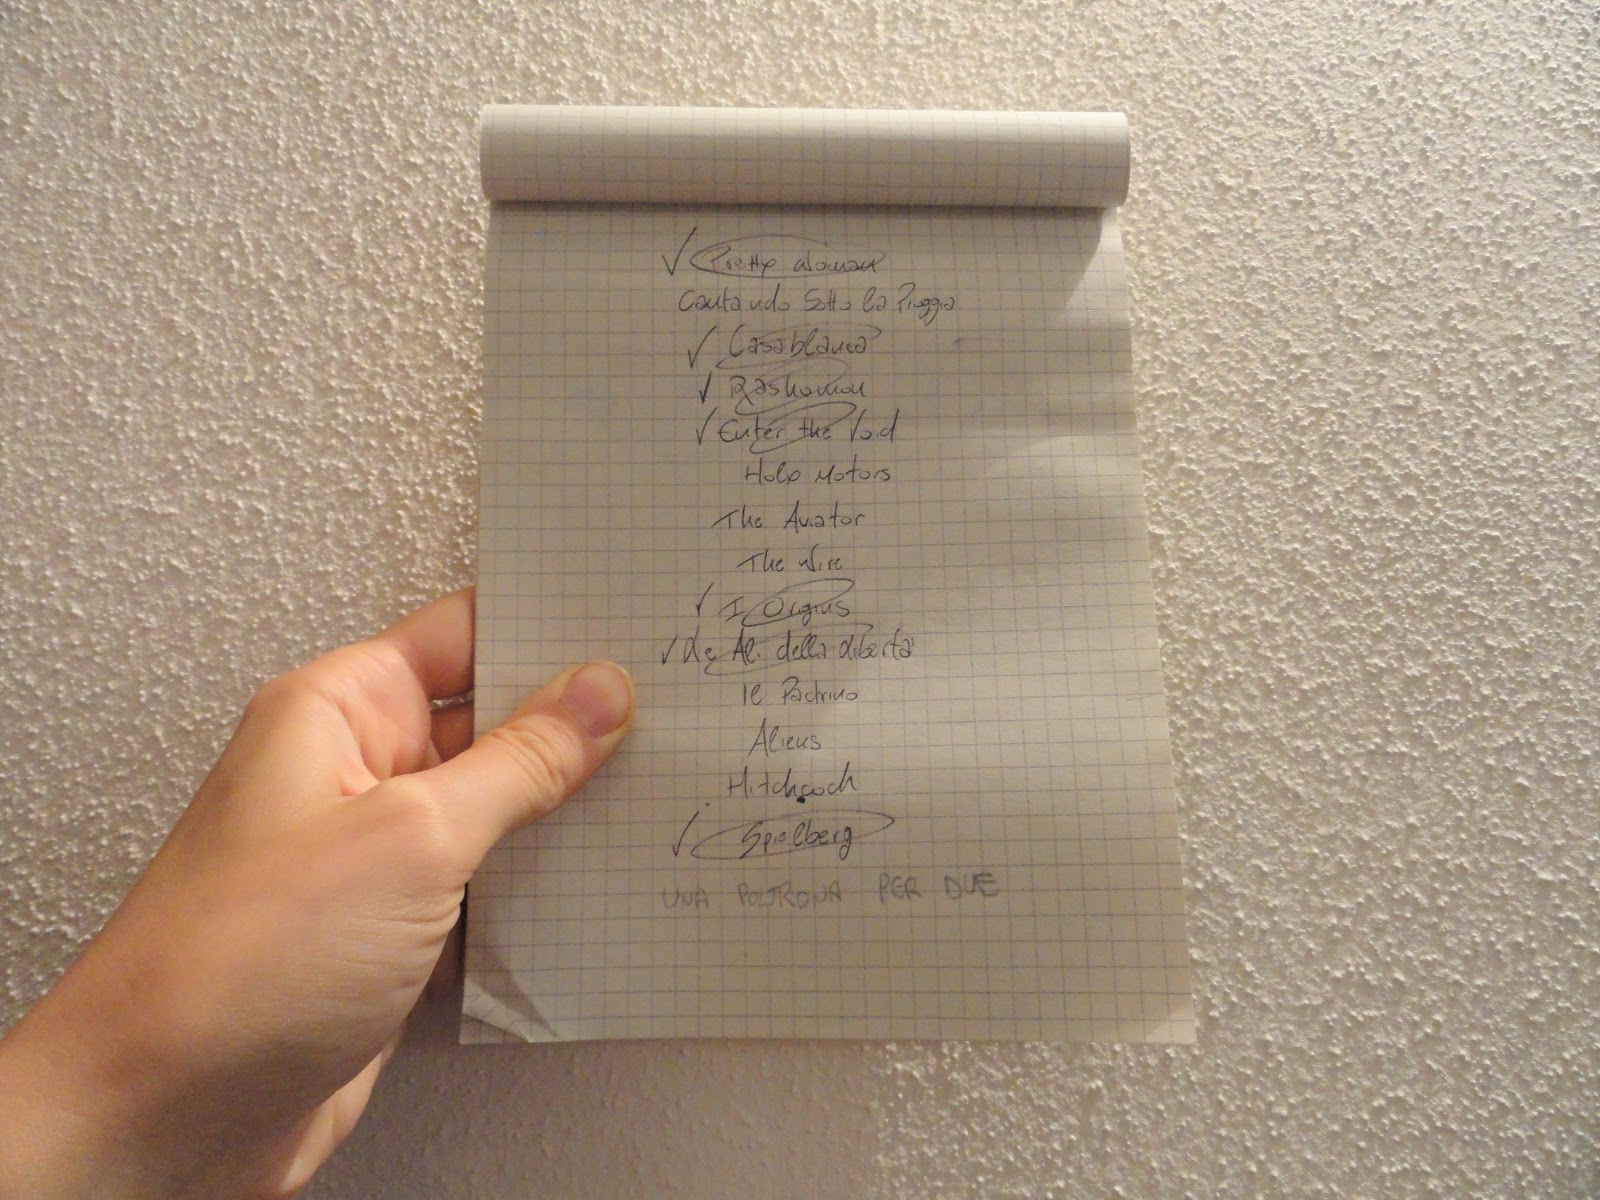 ✓ Pretty Woman
Cantando Sotto la Pioggia
✓ Casablanca
✓ Rashomon
✓ Enter the Void
Holy Motors
The Aviator
The Wire
✓ I Origins
✓ Le Ali della Libertà
Il Padrino
Aliens
Hitchcock
✓ Spielberg
UNA POLTRONA PER DUE